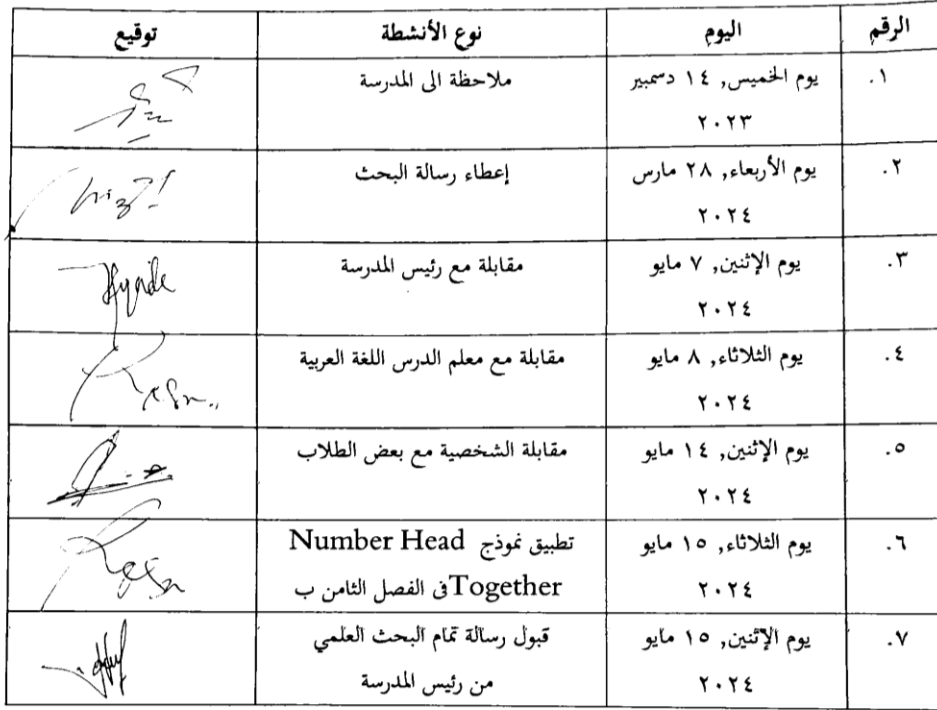 الرقم اليوم نوع الأنشطة توقيع
١. يوم الخميس, ١٤ دسمبير ملاحظة الى المدرسة
٢٠٢٣
٢. يوم الأربعاء, ٢٨ مارس إعطاء رسالة البحث
٢٠٢٤
٣. يوم الإثنين, ٧ مايو مقابلة مع رئيس المدرسة
٢٠٢٤
٤. يوم الثلاثاء, ٨ مايو مقابلة مع معلم الدرس اللغة العربية
٢٠٢٤
٥. يوم الإثنين, ١٤ مايو مقابلة الشخصية مع بعض الطلاب
٢٠٢٤
٦. يوم الثلاثاء, ١٥ مايو تطبيق نموذج Number Head
٢٠٢٤ Together فى الفصل الثامن ب
٧. يوم الإثنين, ١٥ مايو قبول رسالة تمام البحث العلمي
٢٠٢٤ من رئيس المدرسة